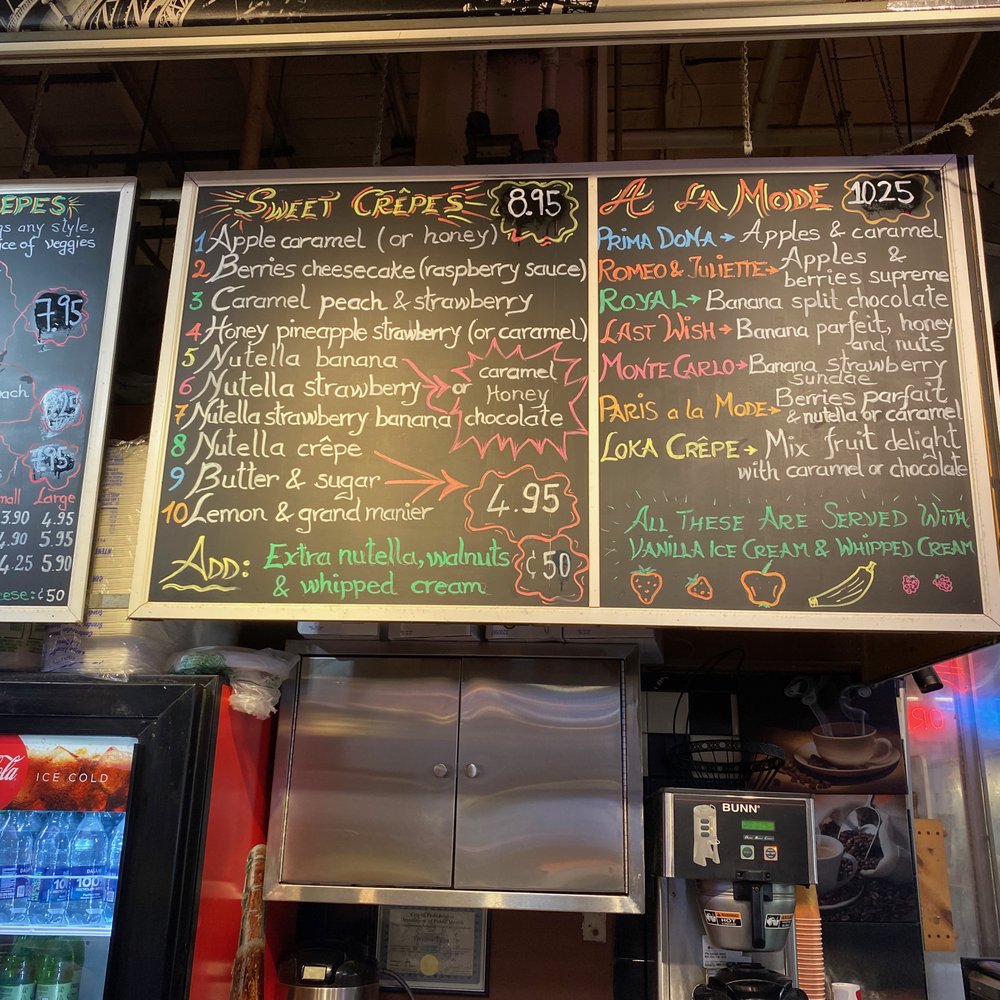 EPES
gs any style,
ice of veggies
7.95
each
7.95
Small Large
3.90 4.95
4.90 5.95
4.25 5.90
eese: ¢50
SWEET CRÊPES 8.95
1 Apple caramel (or honey)
2 Berries cheesecake (raspberry sauce)
3 Caramel peach & strawberry
4 Honey pineapple strawberry (or caramel)
5 Nutella banana
6 Nutella strawberry
7 Nutella strawberry banana
or
caramel
Honey
chocolate
8 Nutella crêpe
9 Butter & sugar
10 Lemon & grand manier
4.95
ADD: Extra nutella, walnuts
& whipped cream
¢50
A LA MODE 10.25
PRIMA DONA → Apples & caramel
ROMEO & JULIETTE → Apples &
berries supreme
ROYAL → Banana split chocolate
LAST WISH → Banana parfeit, honey
and nuts
MONTE CARLO → Banana strawberry
sundae
PARIS a la MODE → Berries parfait
& nutella or caramel
LOKA CRÊPE → Mix fruit delight
with caramel or chocolate
ALL THESE ARE SERVED WITH
VANILLA ICE CREAM & WHIPPED CREAM
ICE COLD
DASANI
100
BUNN
WARNING
HOT